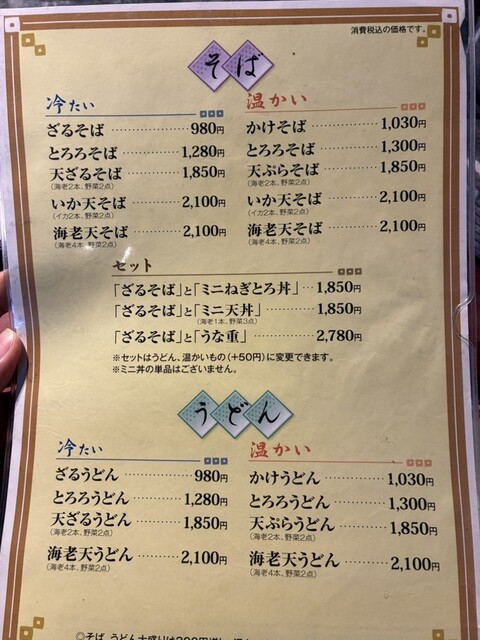 消費税込の価格です。
そば
冷たい
ざるそば 980円
とろろそば 1,280円
天ざるそば 1,850円
(海老2本、野菜2点)
いか天そば 2,100円
(イカ2本、野菜2点)
海老天そば 2,100円
(海老4本、野菜2点)
温かい
かけそば 1,030円
とろろそば 1,300円
天ぷらそば 1,850円
(海老2本、野菜2点)
いか天そば 2,100円
(イカ2本、野菜2点)
海老天そば 2,100円
(海老4本、野菜2点)
セット
「ざるそば」と「ミニねぎとろ丼」 1,850円
「ざるそば」と「ミニ天丼」 1,850円
(海老1本、野菜3点)
「ざるそば」と「うな重」 2,780円
※セットはうどん、温かいもの(+50円)に変更できます。
※ミニ丼の単品はございません。
うどん
冷たい
ざるうどん 980円
とろろうどん 1,280円
天ざるうどん 1,850円
(海老2本、野菜2点)
海老天うどん 2,100円
(海老4本、野菜2点)
温かい
かけうどん 1,030円
とろろうどん 1,300円
天ぷらうどん 1,850円
(海老2本、野菜2点)
海老天うどん 2,100円
(海老4本、野菜2点)
◎そば、うどん大盛りは